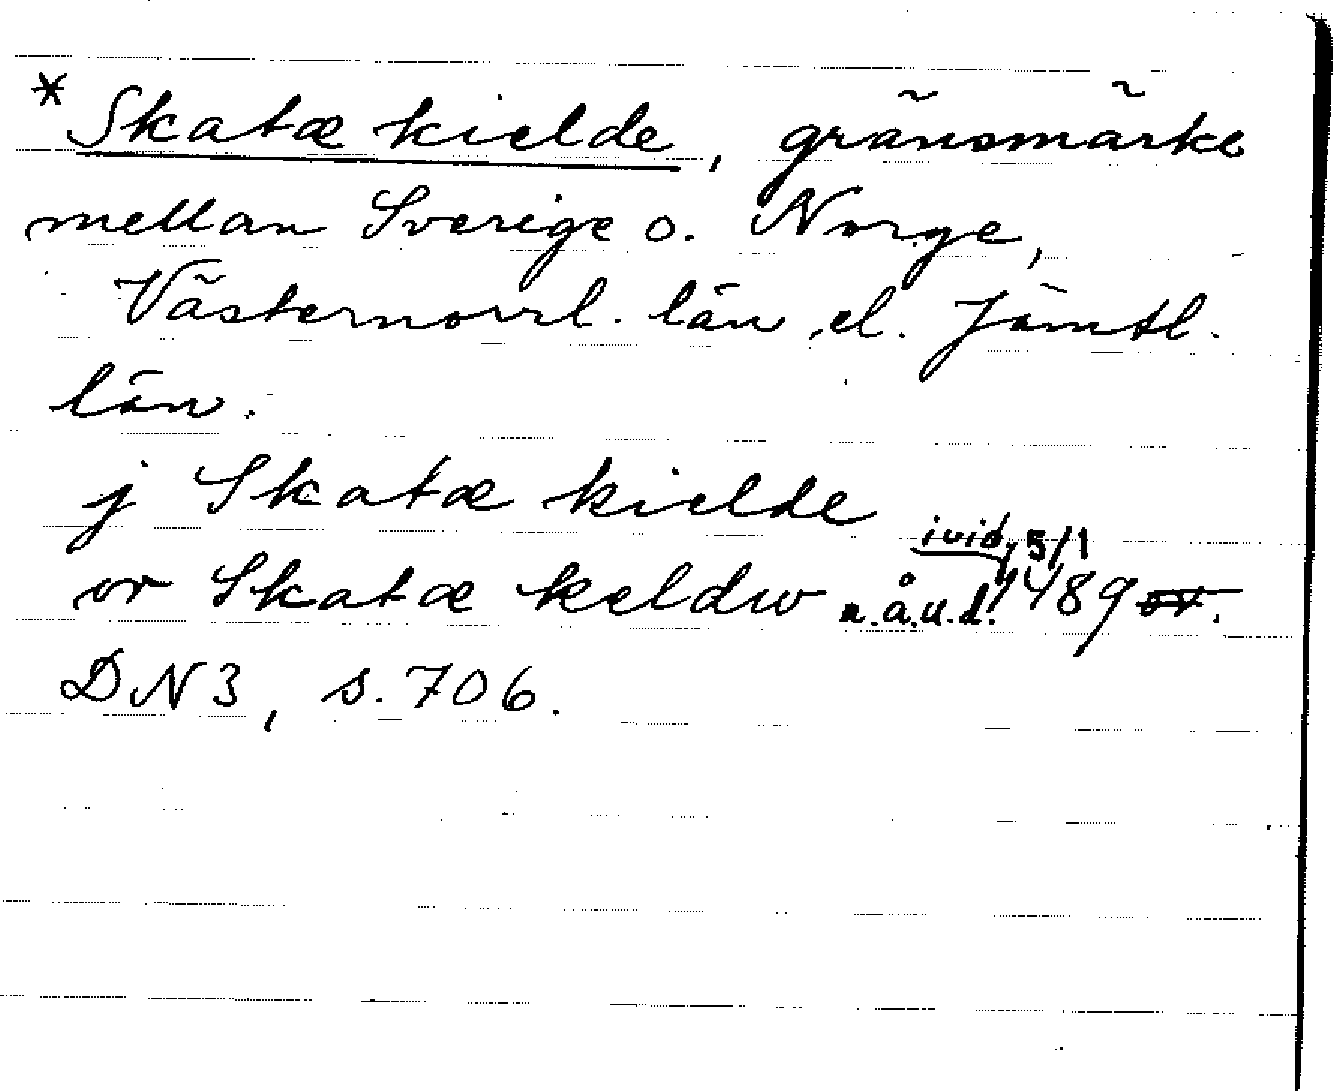 * Skatæ kielde, gränsmärke
mellan Sverige o. Norge,
Västernorrl. län el. Jämtl.
län.
j Skatæ kielde
or Skatæ keldw ivid. 5/1 n.å.u.d. 1489 or.
DN 3, s. 706.